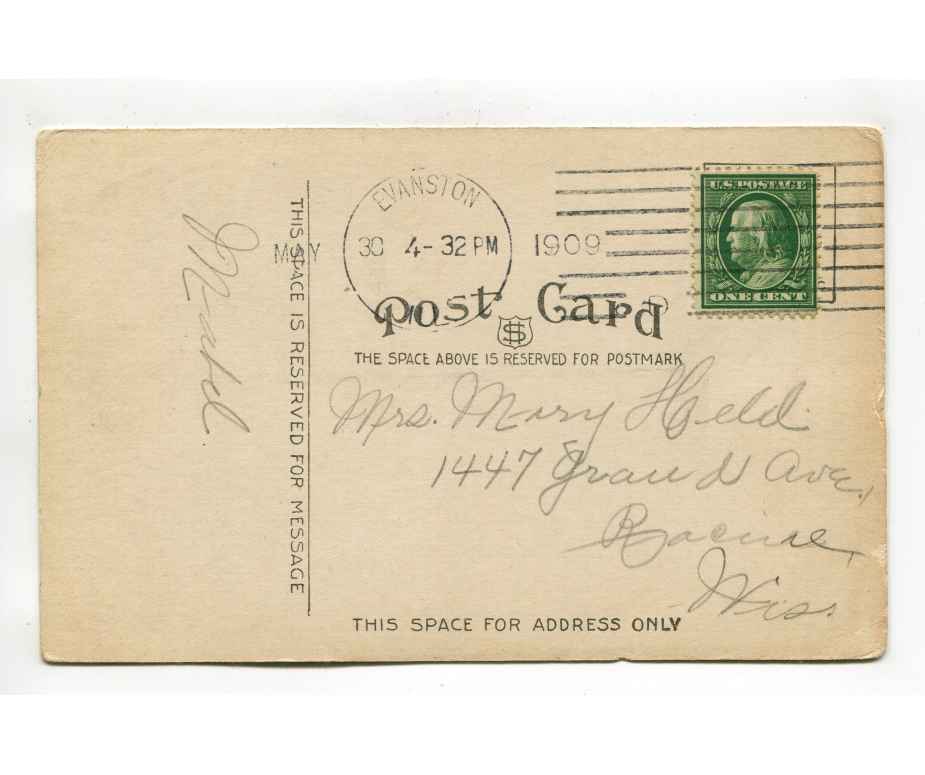 EVANSTON
MAY 30 4-32 PM 1909
ILL.
U.S. POSTAGE
ONE CENT
Post Card
THE SPACE ABOVE IS RESERVED FOR POSTMARK
Mabel.
THIS SPACE IS RESERVED FOR MESSAGE
Mrs. Mary Held.
1447 Grand Ave.,
Racine,
Wis.
THIS SPACE FOR ADDRESS ONLY